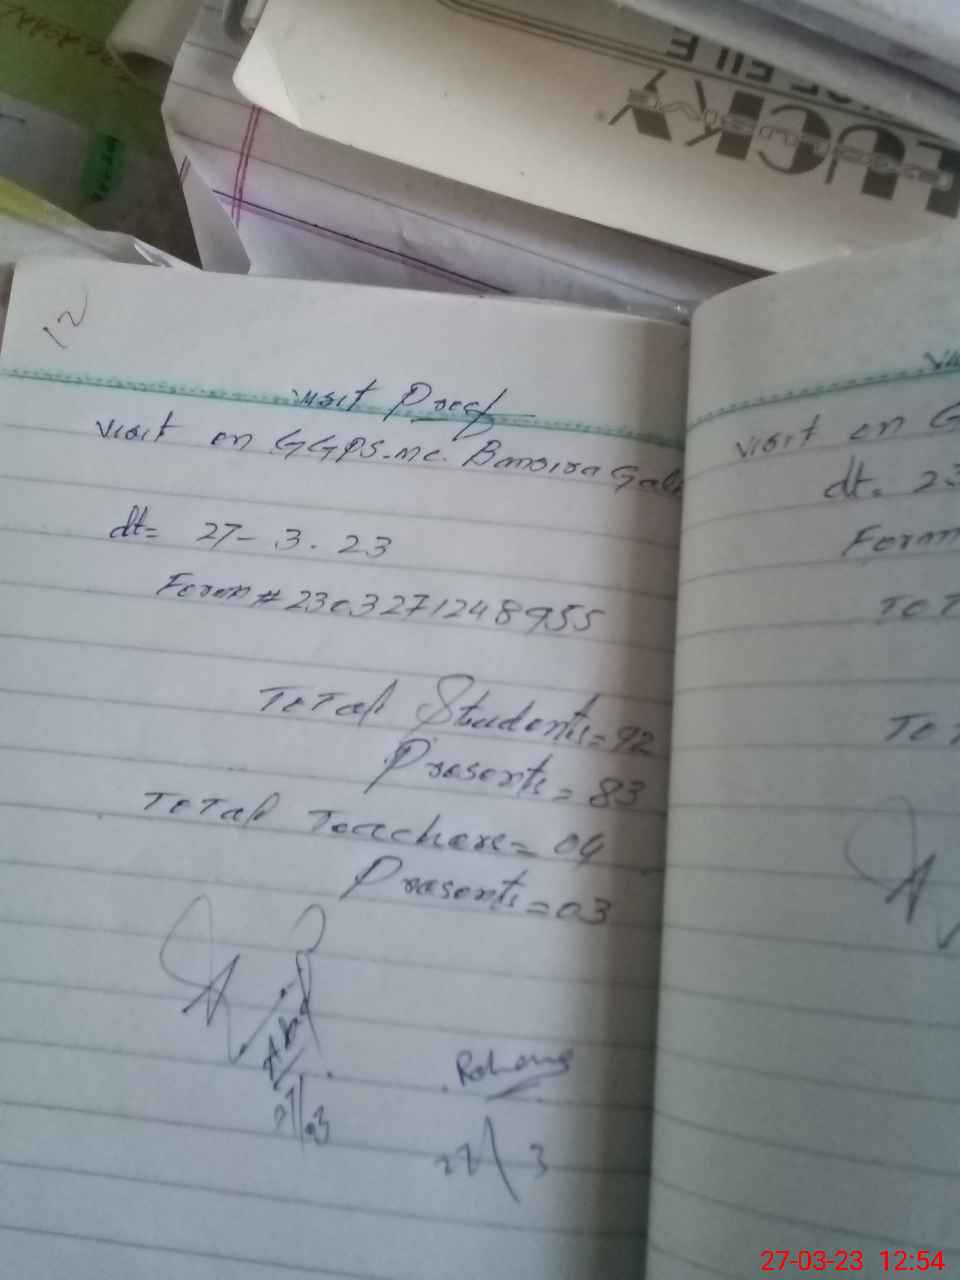 LUCKY
FILE
12
visit Proof
visit on GGPS.mc. Banoira Gali
dt= 27-3.23
Form # 2303271248955
Total Students=92
Presents=83
Total Teachers=04
Presents=03
27/03
Rehana
27/3
visit on G
dt. 23
Form
Tot
Tot
27-03-23 12:54